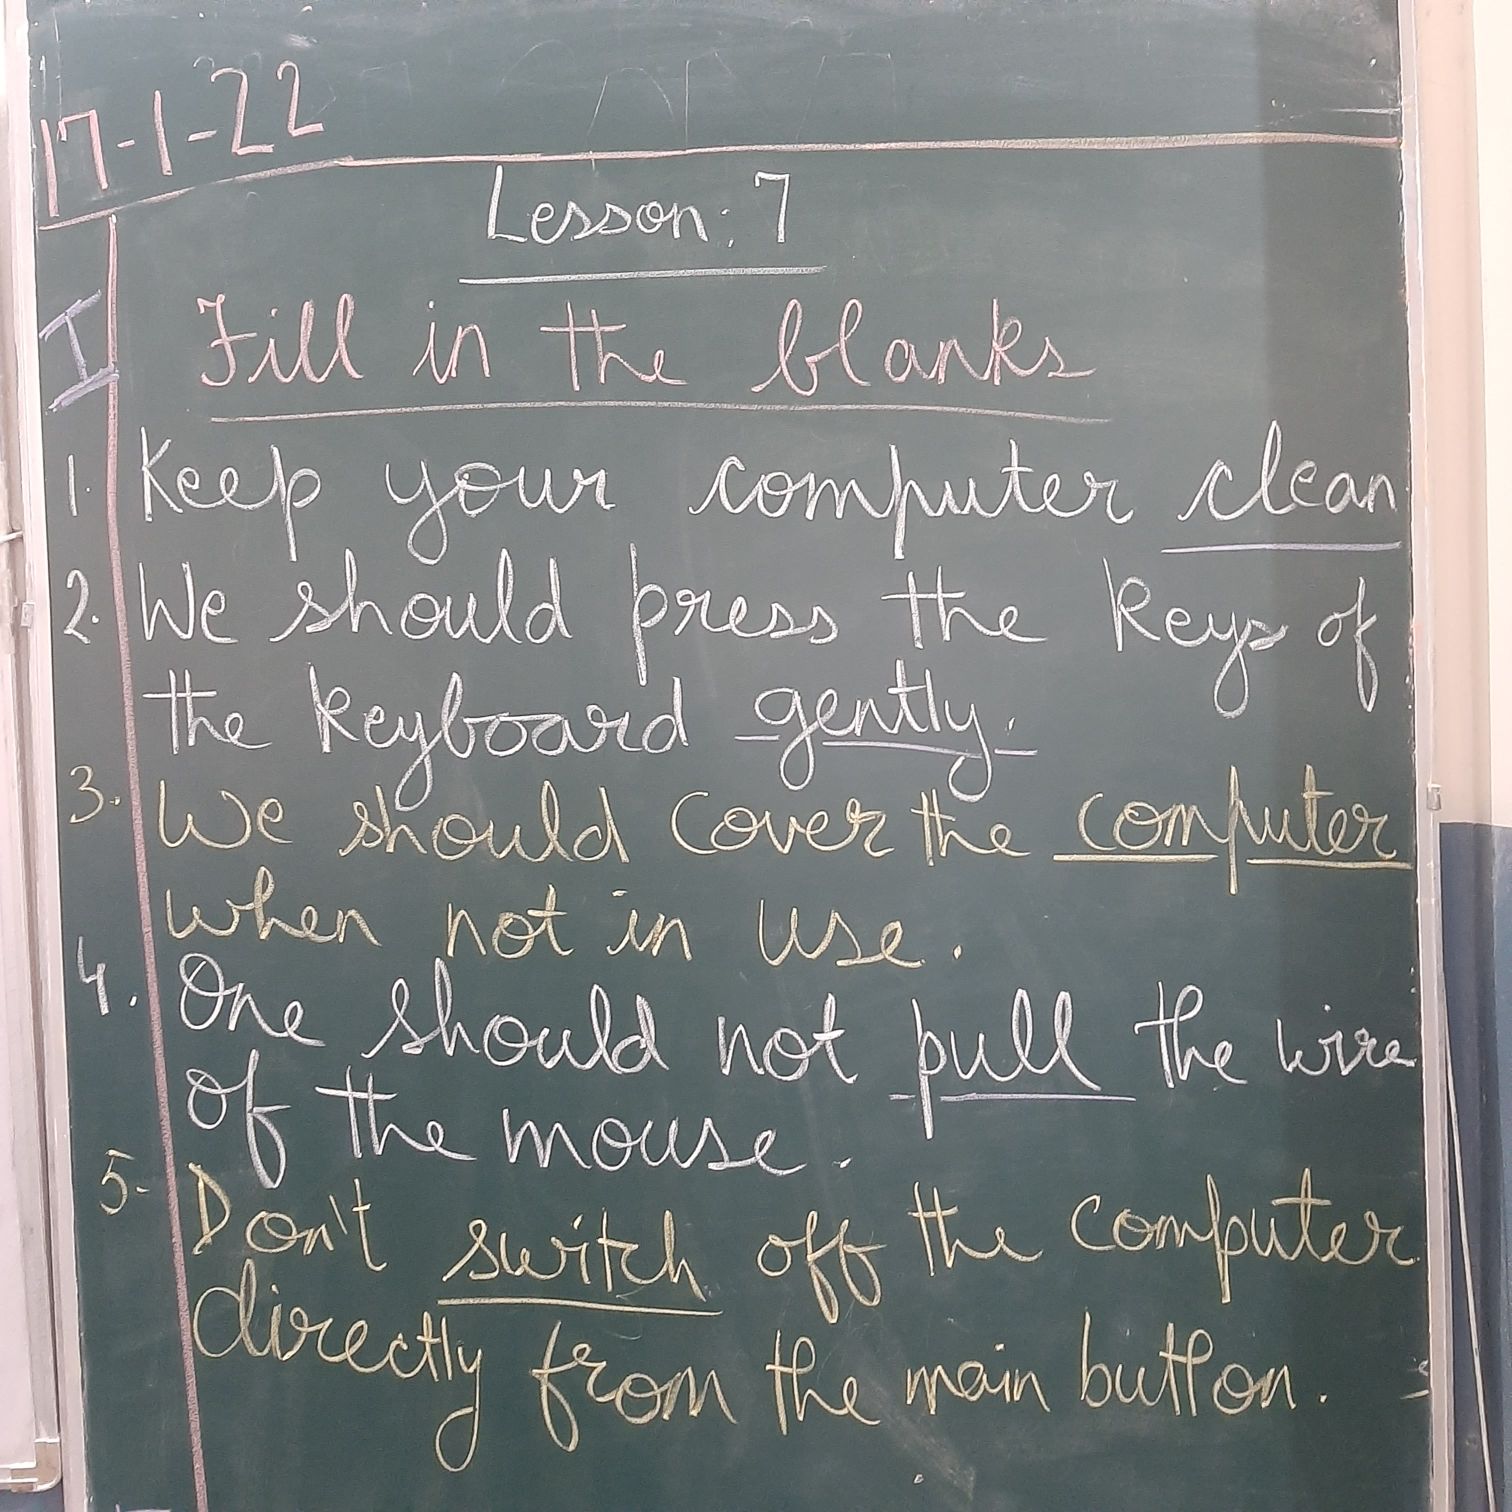 17-1-22
Lesson: 7
I Fill in the blanks
1. Keep your computer clean
2. We should press the keys of
the keyboard gently.
3. We should cover the computer
when not in use.
4. One should not pull the wire
of the mouse.
5- Don't switch off the computer
directly from the main button.